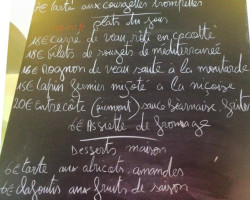 7€ tarte aux courgettes trompettes
plats du jour
18€ carré de veau rôti en cocotte
16€ filets de rougets de méditerranée
16€ Rognon de veau sauté à la moutarde
15€ lapin fermier mijoté à la niçoise
20€ entrecôte (piémont) sauce Béarnaise, frites
6€ Assiette de fromage
Desserts maison
6€ tarte aux abricots, amandes
6€ clafoutis aux fruits de saison